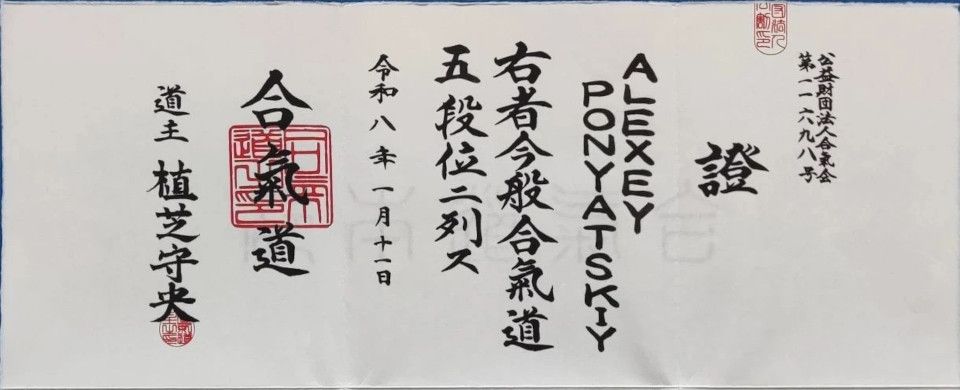 公益財団法人合氣会
第一一六九八号
證
ALEXEY
PONYATSKIY
右者今般合氣道
五段位ニ列ス
令和八年一月十一日
合氣道
道主 植芝守央